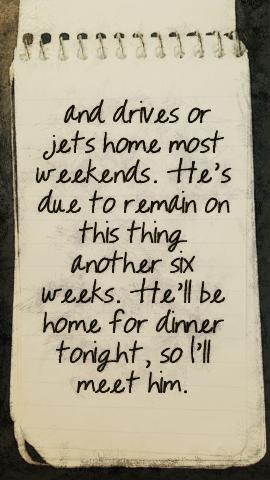 and drives or
jets home most
weekends. He's
due to remain on
this thing
another six
weeks. He'll be
home for dinner
tonight, so I'll
meet him.